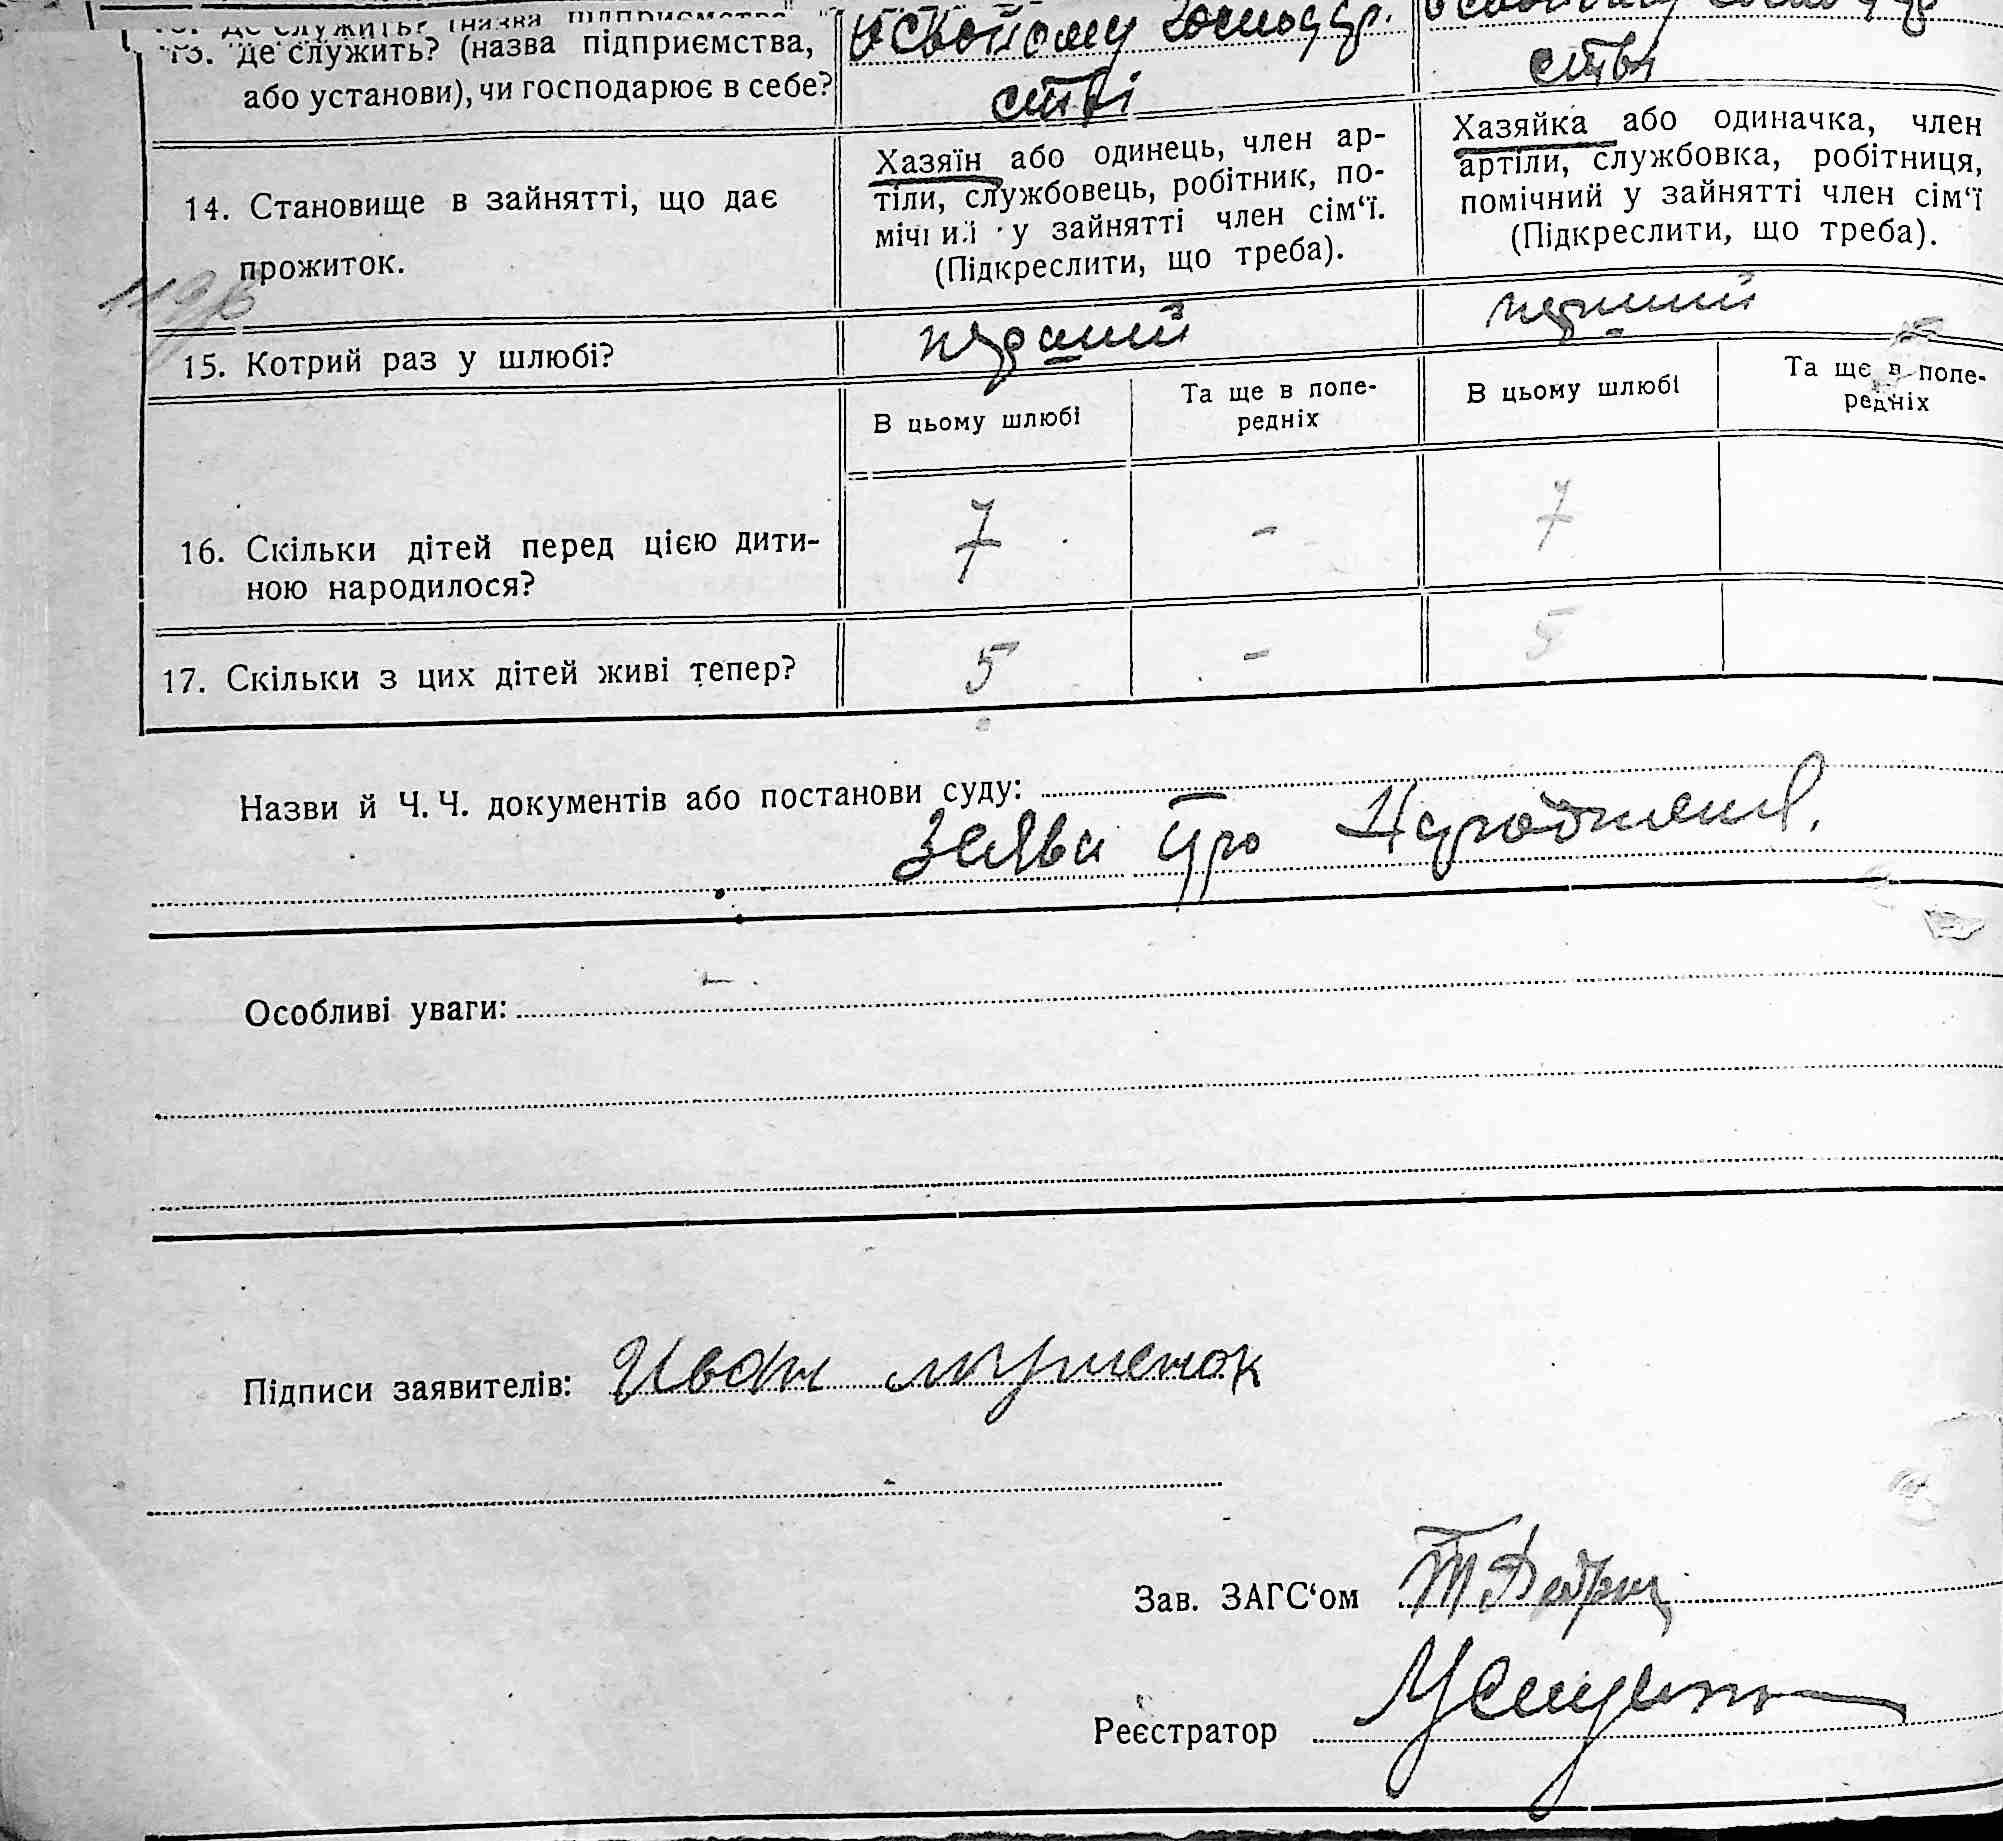 13. Де служить? (назва підприємства,
або установи), чи господарює в себе?
в свойому господар-
стві
в свойому господар
стві
14. Становище в зайнятті, що дає
прожиток.
Хазяїн або одинець, член ар-
тіли, службовець, робітник, по-
мічний у зайнятті член сім‘ї.
(Підкреслити, що треба).
Хазяйка або одиначка, член
артіли, службовка, робітниця,
помічний у зайнятті член сім‘ї
(Підкреслити, що треба).
15. Котрий раз у шлюбі?
перший
перший
В цьому шлюбі
Та ще в попе-
редніх
В цьому шлюбі
Та ще в попе-
редніх
16. Скільки дітей перед цією дити-
ною народилося?
7 - 7
17. Скільки з цих дітей живі тепер?
5 - 5
Назви й Ч. Ч. документів або постанови суду:
Заява про Народження.
Особливі уваги:
Підписи заявителів: Иван
Зав. ЗАГС‘ом
Реєстратор